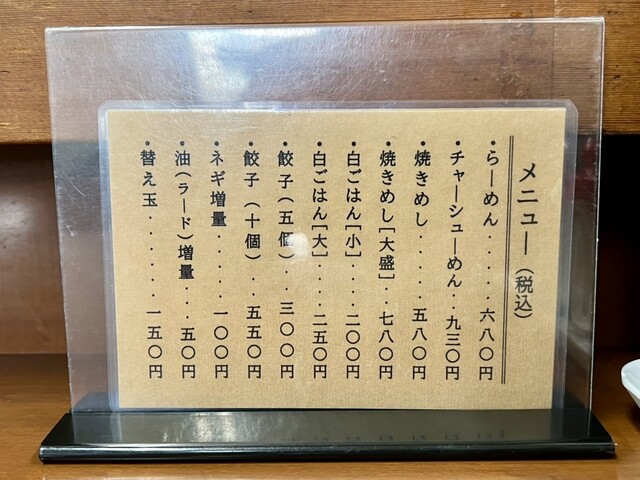 メニュー(税込)
・らーめん・・・・・六八〇円
・チャーシューめん・・九三〇円
・焼きめし・・・・・五八〇円
・焼きめし[大盛]・・七八〇円
・白ごはん[小]・・・・二〇〇円
・白ごはん[大]・・・・二五〇円
・餃子(五個)・・三〇〇円
・餃子(十個)・・五五〇円
・ネギ増量・・・・・一〇〇円
・油(ラード)増量・・・五〇円
・替え玉・・・・・・一五〇円